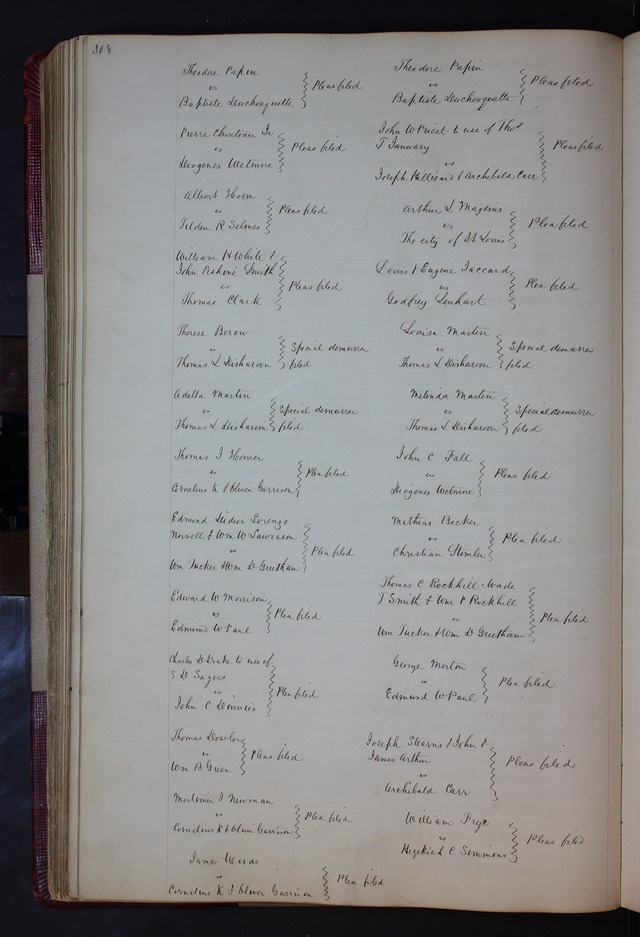 368
Theodore Papin
vs
Baptiste Duchouquette
Pleas filed
Pierre Chouteau Jr
vs
Diogenes Wetmore
Pleas filed
Albert Horn
vs
Tilden R Selmes
Pleas filed
William H White &
John Perkins Smith
vs
Thomas Clark
Pleas filed
Therese Berow
vs
Thomas L Disharoon
Special demurrer
filed
Adella Martin
vs
Thomas L Disharoon
Special demurrer
filed
Thomas J Homer
vs
Cornelius K & Oliver Garrison
Plea filed
Edmund Didier Lorenzo
Norvell & Wm W Lawrason
vs
Wm Tucker & Wm D Greetham
Plea filed
Edward W Morrison
vs
Edmund W Paul
Plea filed
Charles D Drake to use of
S D Sayers
vs
John C Dinnies
Plea filed
Thomas Dowler
vs
Wm B Green
Pleas filed
Mortimer J Newman
vs
Cornelius K & Oliver Garrison
Plea filed
James Words
vs
Cornelius K & Oliver Garrison
Plea filed
Theodore Papin
vs
Baptiste Duchouquette
Pleas filed
John W Priest to use of Thos
T January
vs
Joseph Hilliard & Archibald Carr
Pleas filed
Arthur L Magenis
vs
The city of St Louis
Plea filed
Louis & Eugene Jaccard
vs
Godfrey Lenhart
Plea filed
Louisa Martin
vs
Thomas L Disharoon
Special demurrer
filed
Melinda Martin
vs
Thomas L Disharoon
Special demurrer
filed
John C Fall
vs
Diogenes Wetmore
Pleas filed
Mathias Becker
vs
Christian Stimler
Plea filed
Thomas C Rockhill Wade
T Smith & Wm P Rockhill
vs
Wm Tucker & Wm D Greetham
Plea filed
George Morton
vs
Edmund W Paul
Plea filed
Joseph Stearns & John P
James Arthur
vs
Archibald Carr
Plea filed
William Frye
vs
Hezekiah C Simmons
Pleas filed